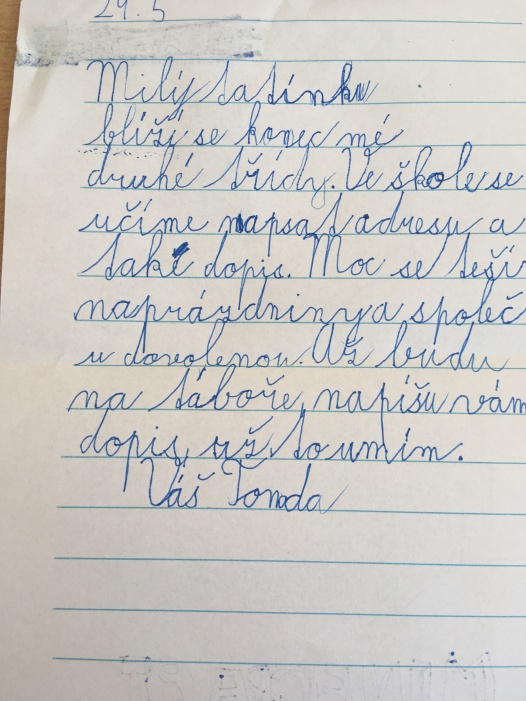 29. 5
Milý tatínku
blíží se konec mé
druhé třídy. Ve škole se
učíme napsat adresu a
také dopis. Moc se teší
naprázdniny a společ
u dovolenou. Až budu
na táboře, napíšu vám
dopis, už to umím.
Váš Tomda